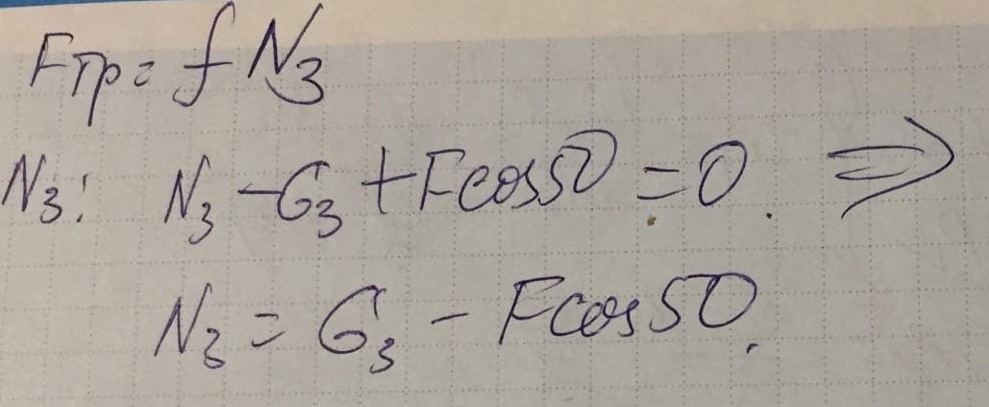 Fтр = f N₃
N₃: N₃ - G₃ + Fcos50 = 0. ⇒
N₃ = G₃ - Fcos50.